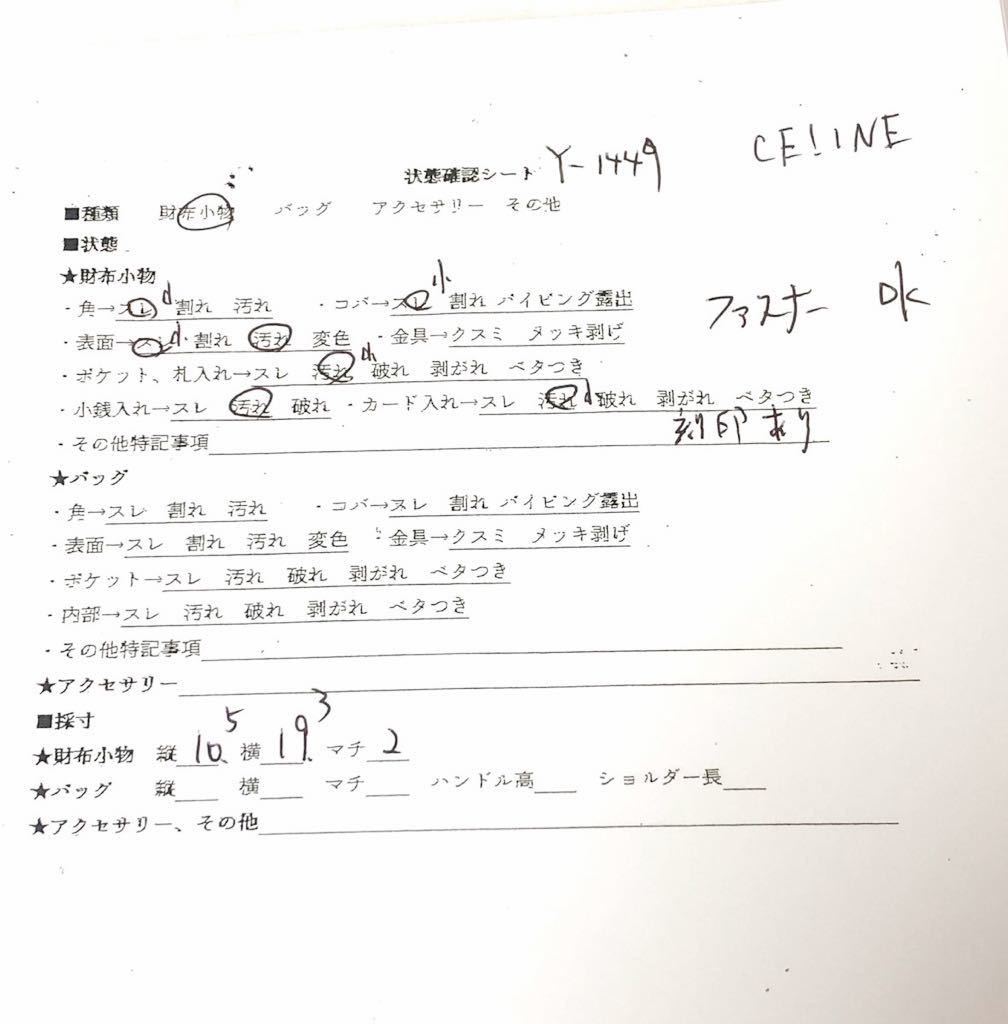 CELINE
状態確認シート Y-1449
■種類 財布小物 バッグ アクセサリー その他
■状態
★財布小物
・角→スレ小 割れ 汚れ ・コバ→スレ小 割れ パイピング露出
ファスナー OK
・表面→スレ小 割れ 汚れ 変色 ・金具→クスミ メッキ剥げ
・ポケット、札入れ→スレ 汚れ小 破れ 剥がれ ベタつき
・小銭入れ→スレ 汚れ 破れ ・カード入れ→スレ 汚れ小 破れ 剥がれ ベタつき
・その他特記事項 刻印あり
★バッグ
・角→スレ 割れ 汚れ ・コバ→スレ 割れ パイピング露出
・表面→スレ 割れ 汚れ 変色 ・金具→クスミ メッキ剥げ
・ポケット→スレ 汚れ 破れ 剥がれ ベタつき
・内部→スレ 汚れ 破れ 剥がれ ベタつき
・その他特記事項
★アクセサリー
■採寸
★財布小物 縦 10.5 横 19.3 マチ 2
★バッグ 縦 横 マチ ハンドル高 ショルダー長
★アクセサリー、その他